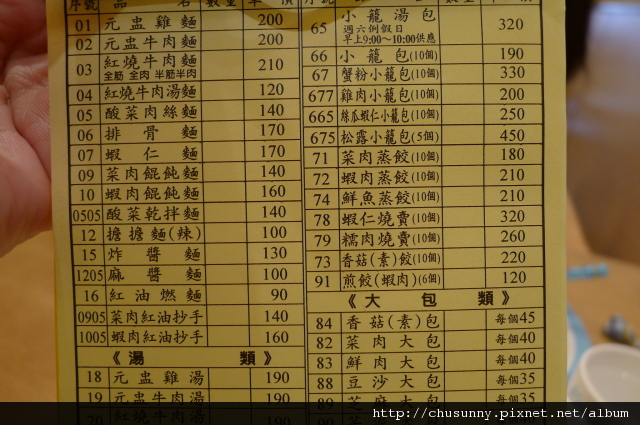 序號 品 名 數量 單 價
01 元盅雞麵 200
02 元盅牛肉麵 200
03 紅燒牛肉麵 210
全筋 全肉 半筋半肉
04 紅燒牛肉湯麵 120
05 酸菜肉絲麵 140
06 排骨麵 170
07 蝦仁麵 170
09 菜肉餛飩麵 140
10 蝦肉餛飩麵 160
0505 酸菜乾拌麵 140
12 擔擔麵(辣) 100
15 炸醬麵 130
1205 麻醬麵 100
16 紅油燃麵 90
0905 菜肉紅油抄手 140
1005 蝦肉紅油抄手 160
《湯 類》
18 元盅雞湯 190
19 元盅牛肉湯 190
20 紅燒牛肉湯 190
65 小籠湯包 320
週六例假日
早上9:00~10:00供應
66 小籠包(10個) 190
67 蟹粉小籠包(10個) 330
677 雞肉小籠包(10個) 200
665 絲瓜蝦仁小籠包(10個) 250
675 松露小籠包(5個) 450
71 菜肉蒸餃(10個) 180
72 蝦肉蒸餃(10個) 210
74 鮮魚蒸餃(10個) 210
78 蝦仁燒賣(10個) 320
79 糯肉燒賣(10個) 260
73 香菇(素)餃(10個) 220
91 煎餃(蝦肉)(6個) 120
《大 包 類》
84 香菇(素)包 每個45
82 菜肉大包 每個40
83 鮮肉大包 每個40
88 豆沙大包 每個35
89 芝麻大包 每個35
http://chusunny.pixnet.net/album